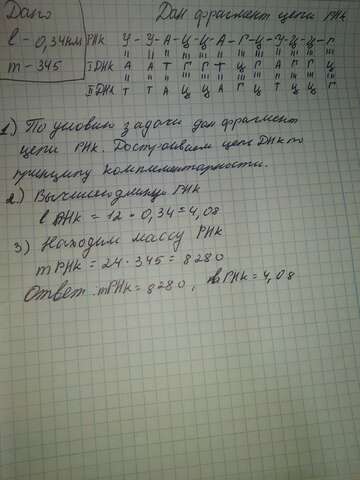 Дано
Дан фрагмент цепи РНК
l - 0,34нм
m - 345
РНК У - У - А - Ц - Ц - А - Г - Ц - У - Ц - Ц - Г
I ДНК А А Т Г Г Т Ц Г А Г Г Ц
II ДНК Т Т А Ц Ц А Г Ц Т Ц Ц Г
1) По условию задачи дан фрагмент
цепи РНК. Достраиваем цепь ДНК по
принципу комплементарности.
2) Вычислю длину РНК
l РНК = 12 · 0,34 = 4,08
3) Находим массу РНК
m РНК = 24 · 345 = 8280
Ответ: m РНК = 8280, РНК = 4,08